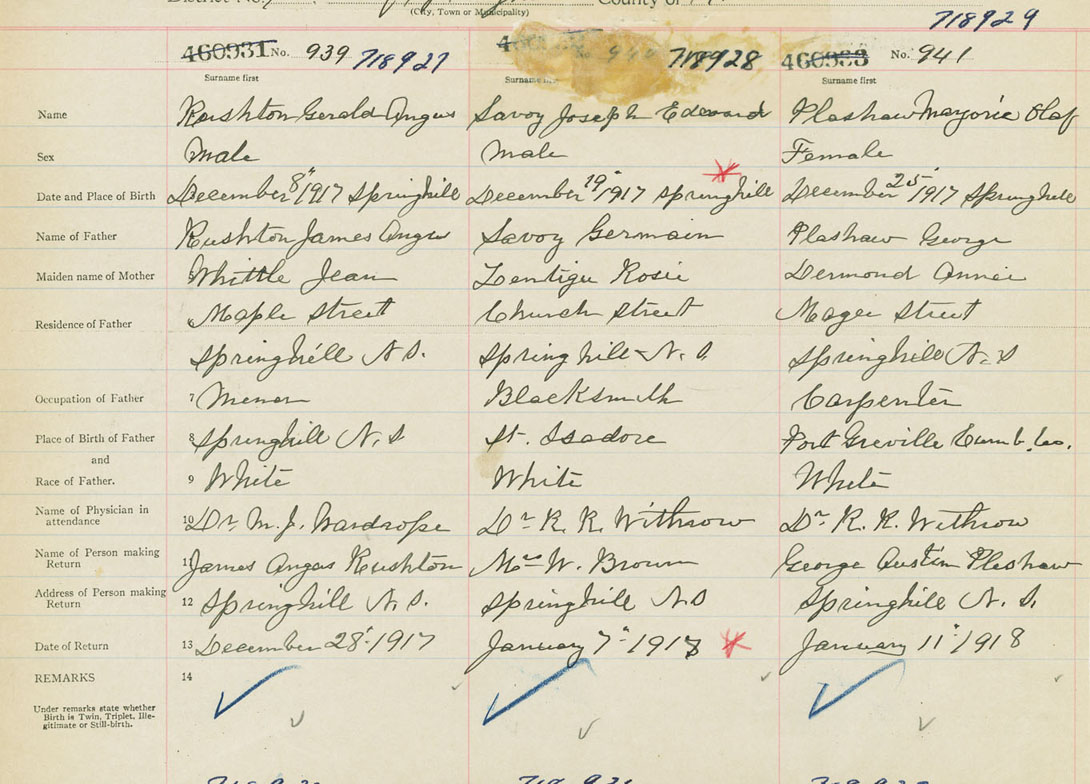 (City, Town or Municipality)
County of
718929
460931 No. 939 718927
940 718928
460933 No. 941
Surname first
Surname first
Surname first
Name Rushton Gerald Angus Savoy Joseph Edward Plashaw Marjorie Olaf
Sex Male Male Female
Date and Place of Birth December 8" 1917 Springhill December 19" 1917 Springhill December 25" 1917 Springhill
Name of Father Rushton James Angus Savoy Germain Plashaw George
Maiden name of Mother 5 Whittle Jean Rosie Dermond Annie
Residence of Father 6 Maple Street Church Street Magee Street
Springhill N.S. Springhill N.S. Springhill N.S
Occupation of Father 7 Menor Blacksmith Carpenter
Place of Birth of Father 8 Springhill N.S St. Isadore Port Greville Cumb. Co.
and
Race of Father. 9 White White White
Name of Physician in
attendance 10 Dr. M. J. Wardrope Dr R. R. Withrow Dr R. R. Withrow
Name of Person making
Return 11 James Angus Rushton Mrs W. Brown George Austin Plashaw
Address of Person making
Return 12 Springhill N.S. Springhill N.S Springhill N.S.
Date of Return 13 December 28" 1917 January 7" 1918 January 11" 1918
REMARKS 14
Under remarks state whether
Birth is Twin, Triplet, Ille-
gitimate or Still-birth.